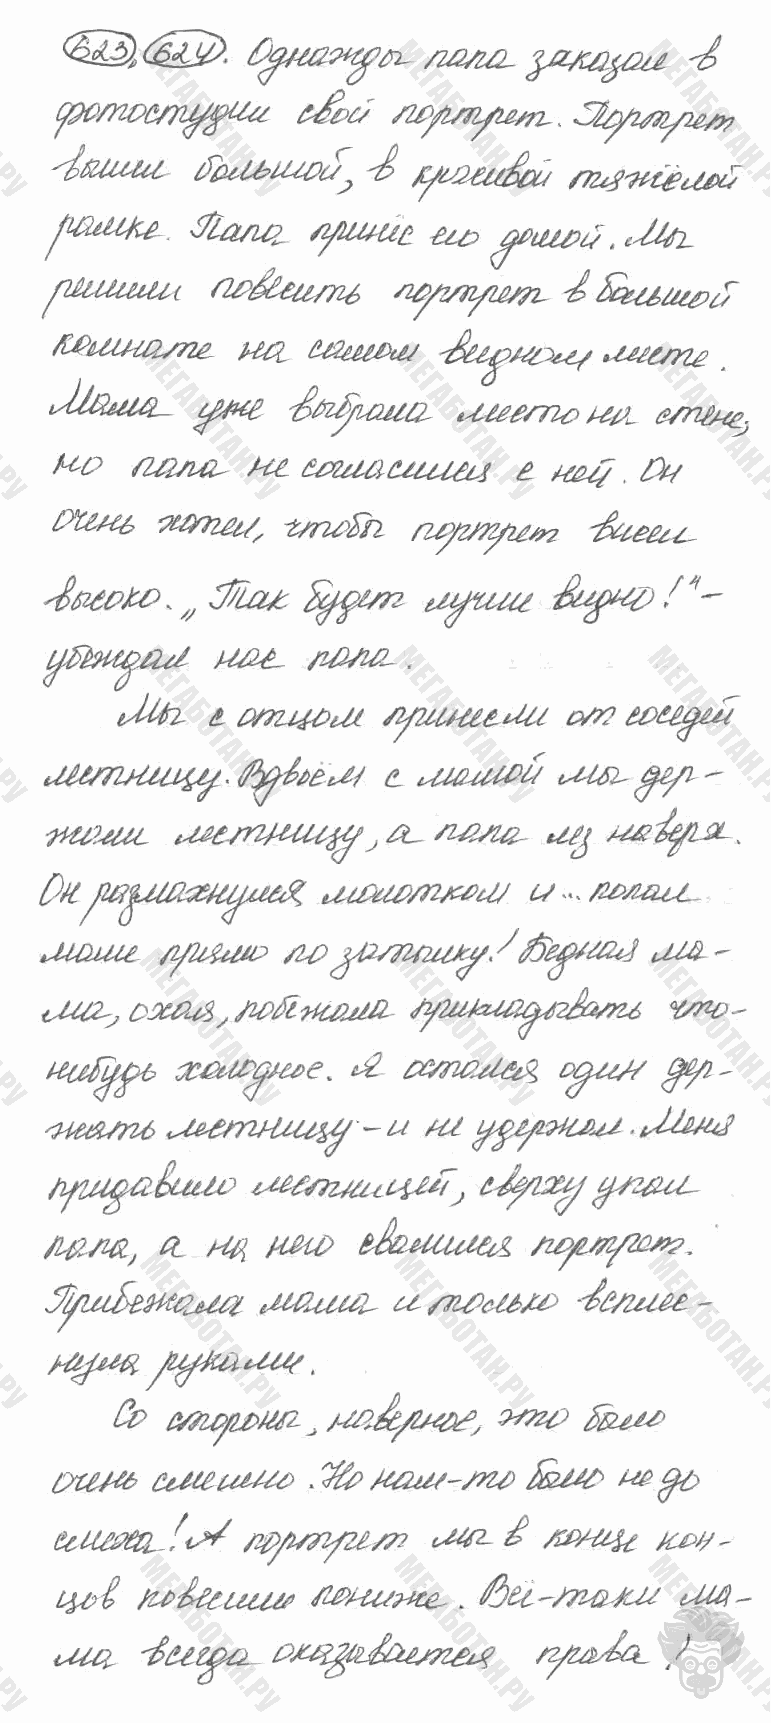 623, 624. Однажды папа заказал в
фотостудии свой портрет. Портрет
вышел большой, в красивой тяжёлой
рамке. Папа принёс его домой. Мы
решили повесить портрет в большой
комнате на самом видном месте.
Мама уже выбрала место на стене,
но папа не согласился с ней. Он
очень хотел, чтобы портрет висел
высоко. „Так будет лучше видно!“ –
убеждал нас папа.
Мы с отцом принесли от соседей
лестницу. Вдвоём с мамой мы дер-
жали лестницу, а папа лез наверх.
Он размахнулся молотком и... попал
маме прямо по затылку! Бедная ма-
ма, охая, побежала прикладывать что-
нибудь холодное. Я остался один дер-
жать лестницу – и не удержал. Меня
придавило лестницей, сверху упал
папа, а на него свалился портрет.
Прибежала мама и только всплес-
нула руками.
Со стороны, наверное, это было
очень смешно. Но нам-то было не до
смеха! А портрет мы в конце кон-
цов повесили пониже. Всё-таки ма-
ма всегда оказывается права!
МЕГАБОТАН.РУ